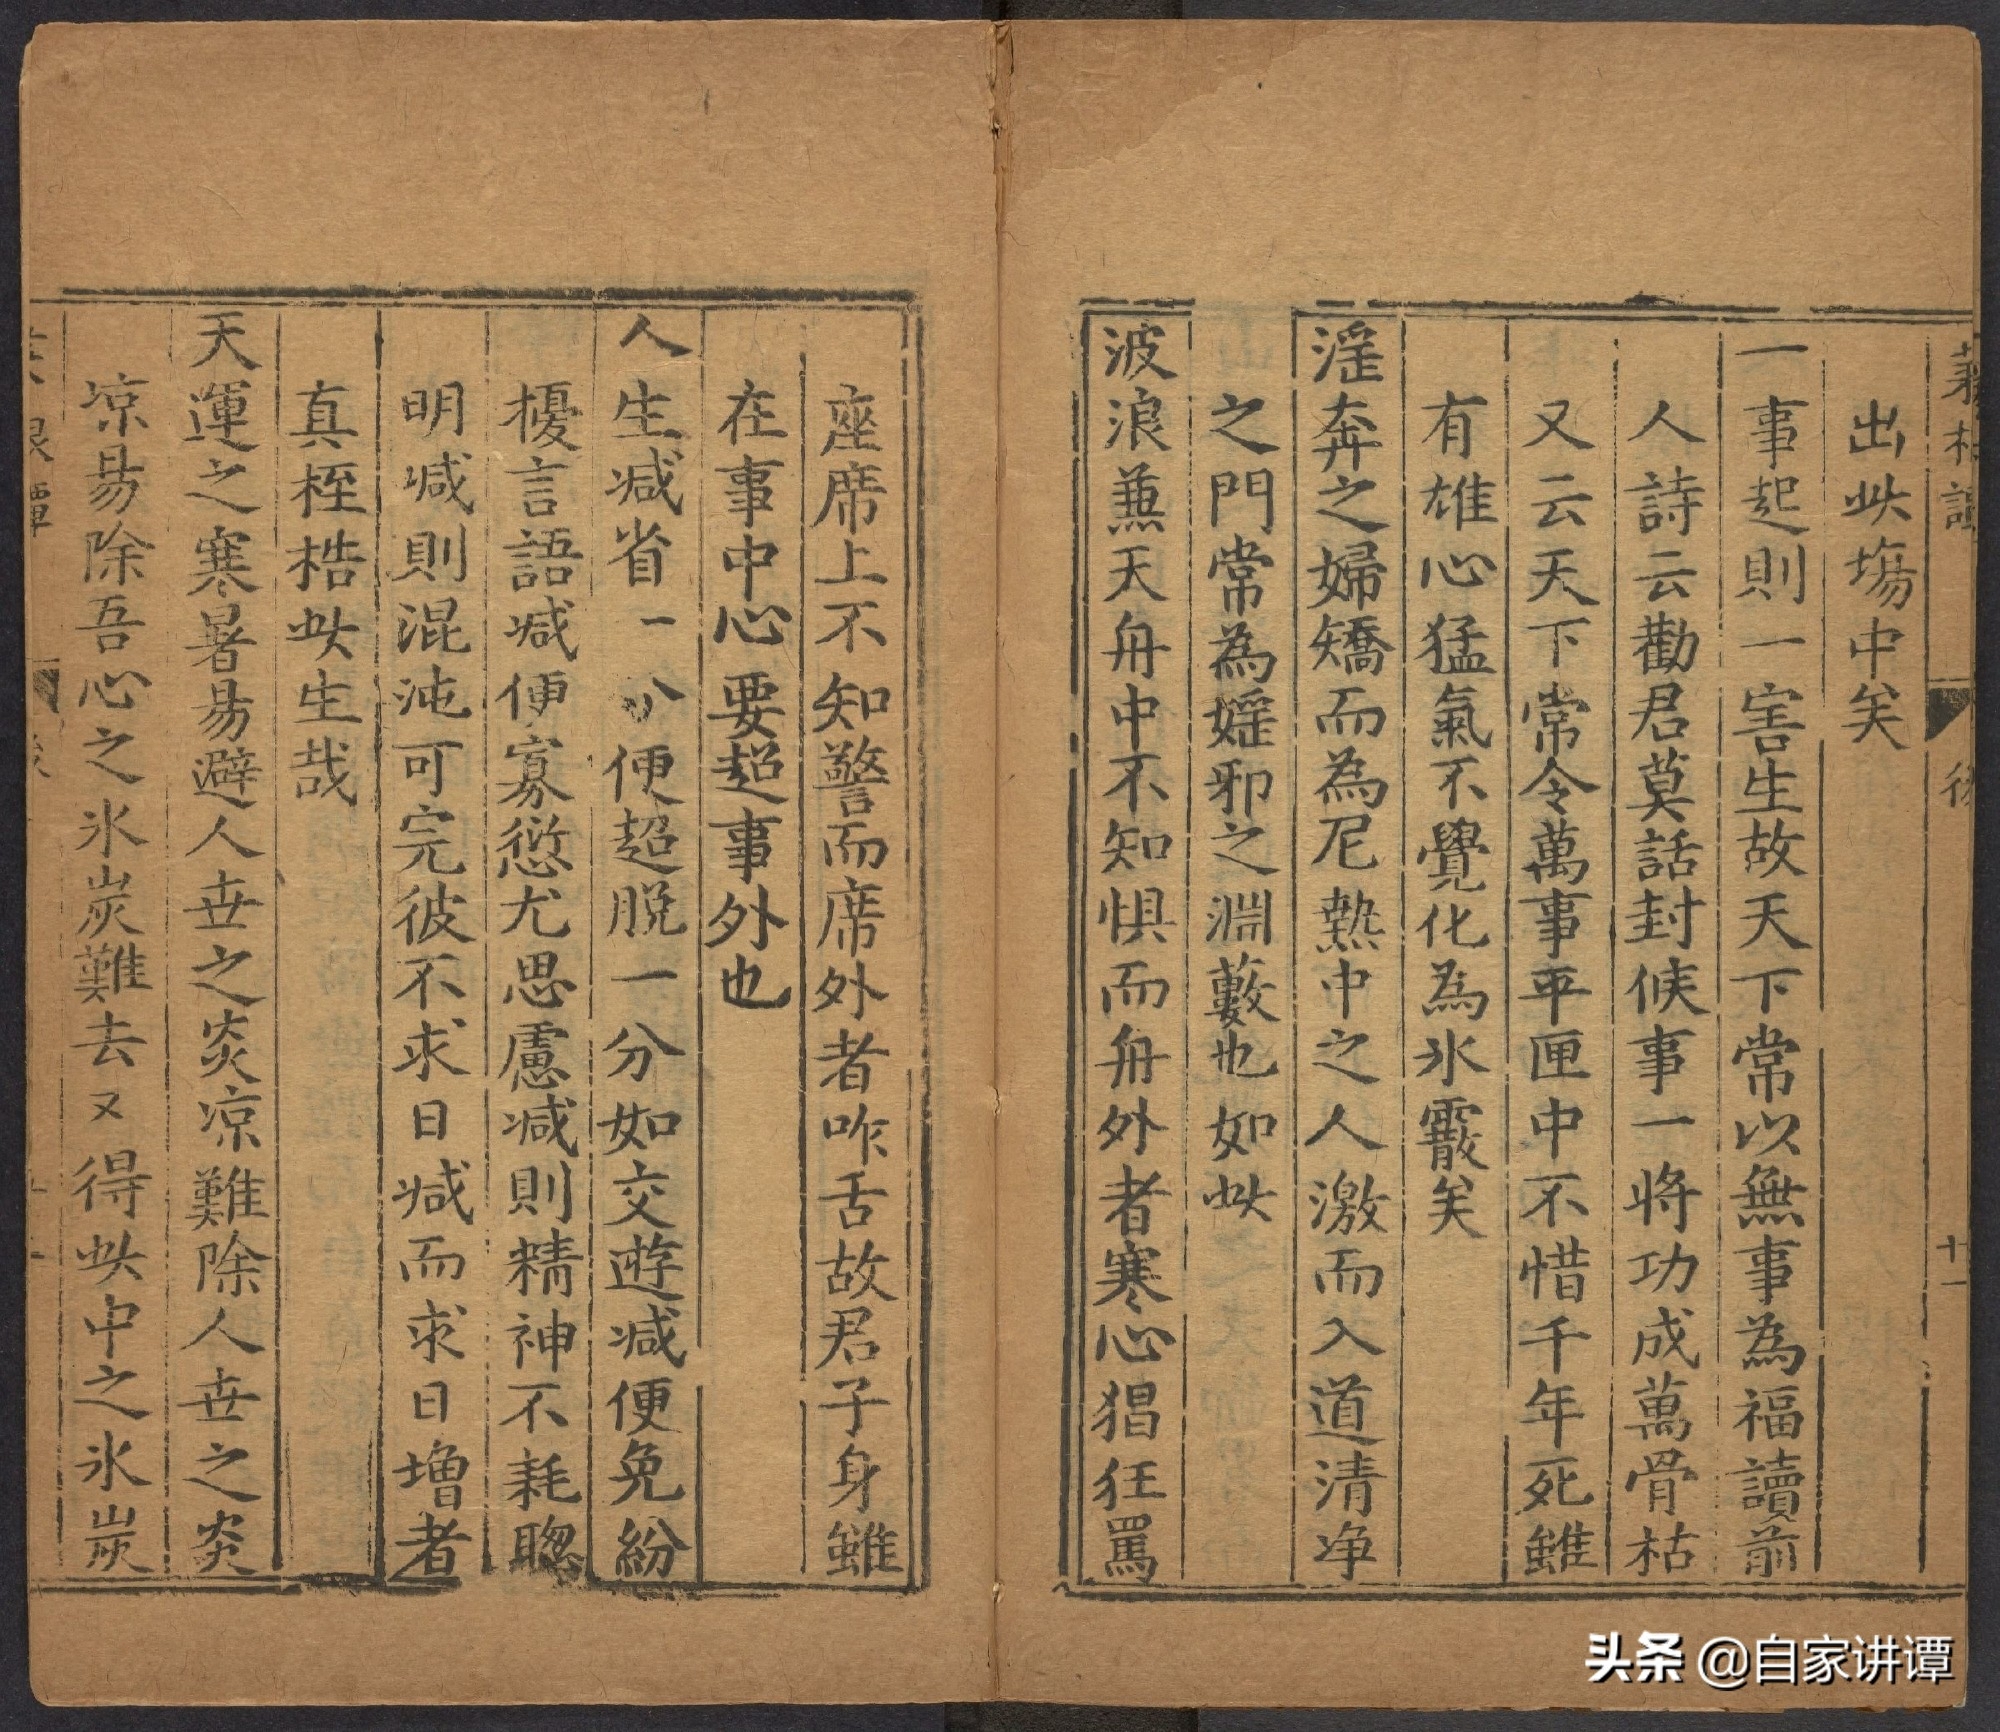 菜根譚 後 十一
出此塲中矣
一事起則一害生故天下常以無事為福讀前
人詩云勸君莫話封候事一将功成萬骨枯
又云天下常令萬事平匣中不惜千年死雖
有雄心猛氣不覺化為氷霰矣
淫奔之婦矯而為尼熱中之人激而入道清净
之門常為婬邪之淵藪也如此
波浪蒹天舟中不知惧而舟外者寒心猖狂罵
座席上不知警而席外者咋舌故君子身雖
在事中心要超事外也
人生减省一分便超脱一分如交遊减便免紛
擾言語减便寡愆尤思慮减則精神不耗聰
明减則混沌可完彼不求日减而求日增者
真桎梏此生哉
天運之寒暑易避人世之炎凉難除人世之炎
凉易除吾心之氷炭難去又得此中之氷炭
根譚
头条 @自家讲谭